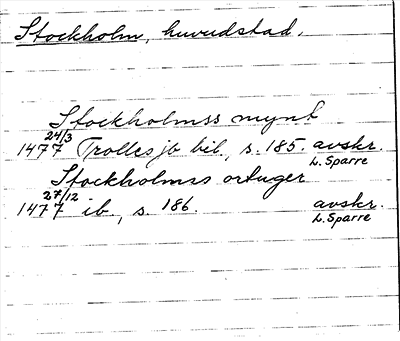 Stockholm, huvudstad.
Stockholmss mynt
1477 24/3 Trolles jb bil., s. 185. avskr. L. Sparre
Stockholmss ortuger
1477 27/12 ib., s. 186. avskr. L. Sparre